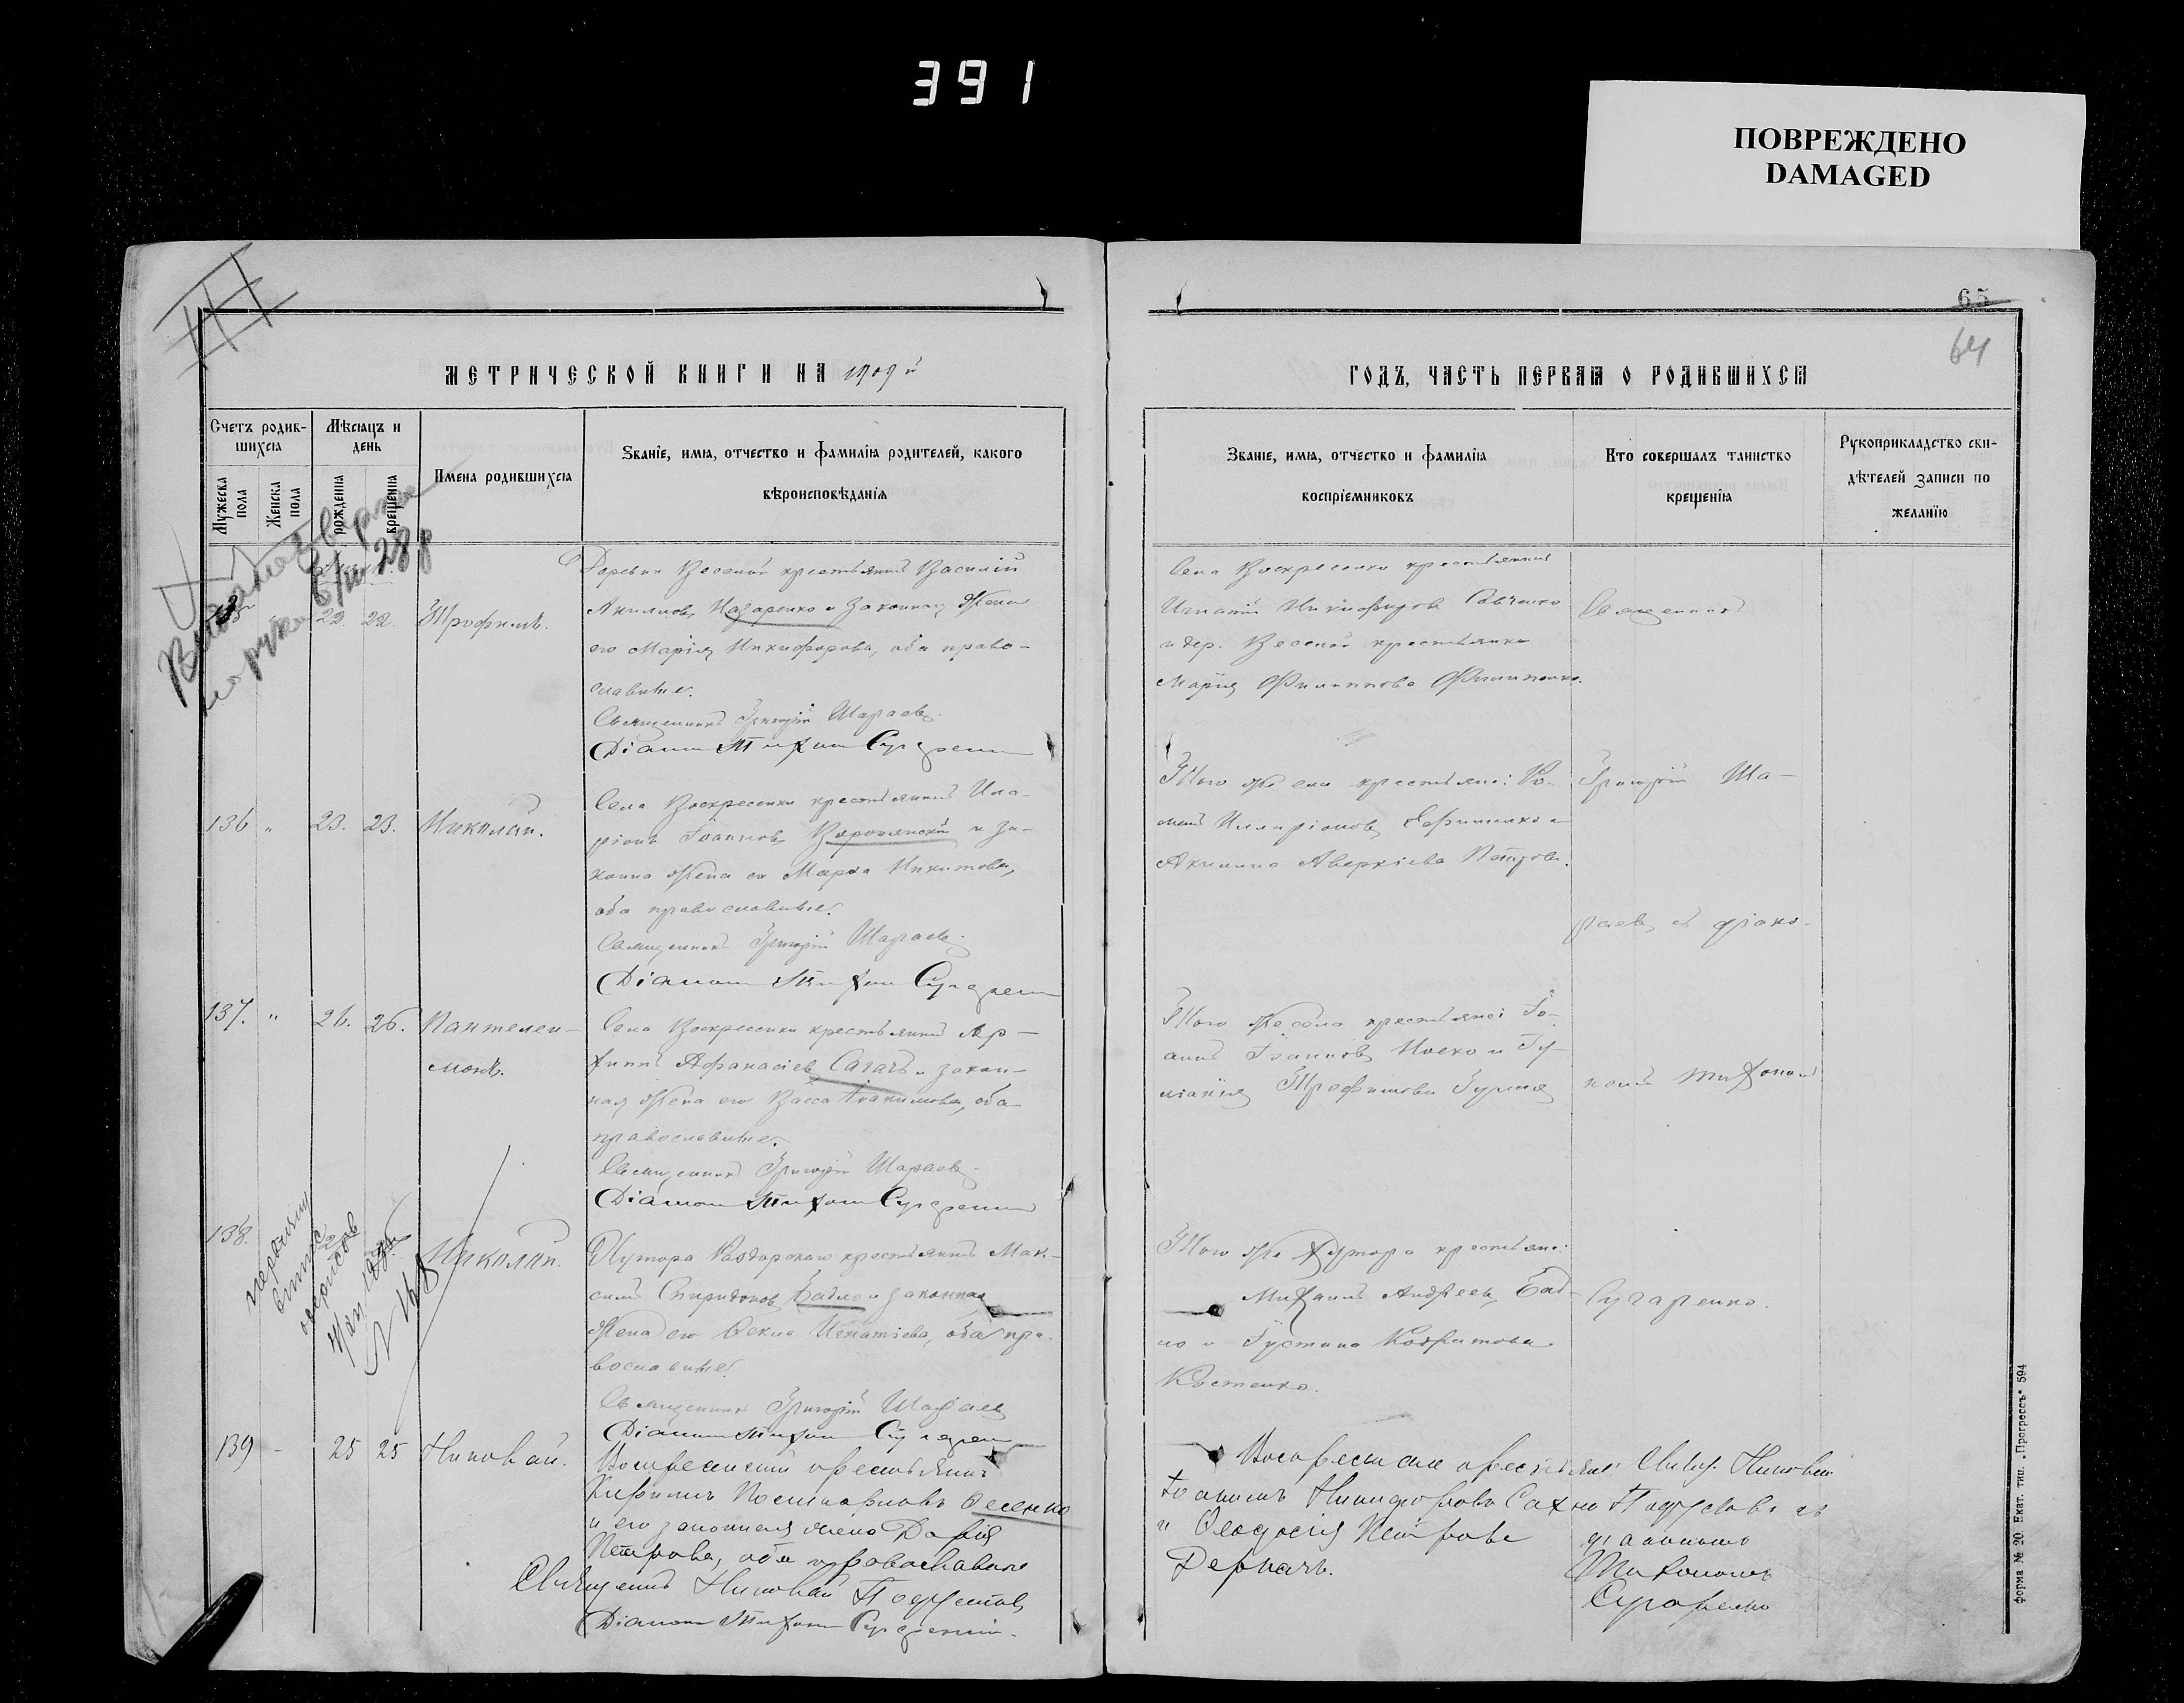 391
ПОВРЕЖДЕНО
DAMAGED
65
64
III
МЕТРИЧЕСКОЙ КНИГИ НА 1909й
ГОДЪ, ЧАСТЬ ПЕРВАЯ О РОДИВШИХСЯ
Счетъ родив-
шихся
Мѣсяцъ и
день
Имена родившихся
Званіе, имя, отчество и фамилія родителей, какого
вѣроисповѣданія
Мужеска
пола
Женска
пола
рожденія
крещенія
Званіе, имя, отчество и фамилія
воспріемниковъ
Кто совершалъ таинство
крещенія
Рукоприкладство сви-
дѣтелей записи по
желанію
22. 22. Трофимъ.
Деревни Веселой крестьянинъ Василій
Акимовъ Назаренко и законная жена
его Марія Никифорова, оба право-
славные.
Священникъ Григорій Шараевъ
Діаконъ Тихонъ Сугаренко
Села Воскресенки крестьянинъ
Игнатій Никифоровъ Савченко
и дер. Веселой крестьянка
Марія Филиппова Филипенко.
Священникъ
136 " 23. 23. Николай.
Села Воскресенки крестьянинъ Ила-
ріонъ Іоанновъ и за-
конная жена его Марѳа Никитова,
оба православные.
Священникъ Григорій Шараевъ
Діаконъ Тихонъ Сугаренко
Того же села крестьяне: Ро-
манъ Илларіоновъ Ефименко и
Акилина Аверкіева Петрова.
Григорій Ша-
раевъ съ діако-
137. " 26. 26. Пантелеи-
монъ.
Села Воскресенки крестьянинъ Ар-
хипъ Афанасіевъ Сагачъ и закон-
ная жена его Васса Іоакимова, оба
православные.
Священникъ Григорій Шараевъ
Діаконъ Тихонъ Сугаренко
Того же села крестьяне: Іо-
аннъ Іоанновъ Носко и Іу-
ліанія Трофимова
номъ Тихономъ
138. Николай.
Хутора крестьянинъ Мак-
симъ Спиридоновъ Бабло и законная
жена его Ѳекла Игнатіева, оба пра-
вославные.
Священникъ Григорій Шараевъ
Діаконъ Тихонъ Сугаренко
Того же хутора крестьяне:
Михаилъ Андреевъ Баб-
ло и Іустина Кодратова
Костенко.
Сугаренко.
139 - 25 25 Николай.
Воскресенскій крестьянинъ
Кириллъ Поликарповъ Ѳесенко
и его законная жена Дарія
Петрова, оба православные
Священникъ Николай
Діаконъ Тихонъ Сугаренко.
Воскресенские крестьяне:
Іоакимъ Никифоровъ Сахно
и Ѳеодосія Петрова
Деркачъ.
Свящ. Николай
съ
діакономъ
Тихономъ
Сугаренко
Форма № 20 Екат. тип. „Прогрессъ" 594